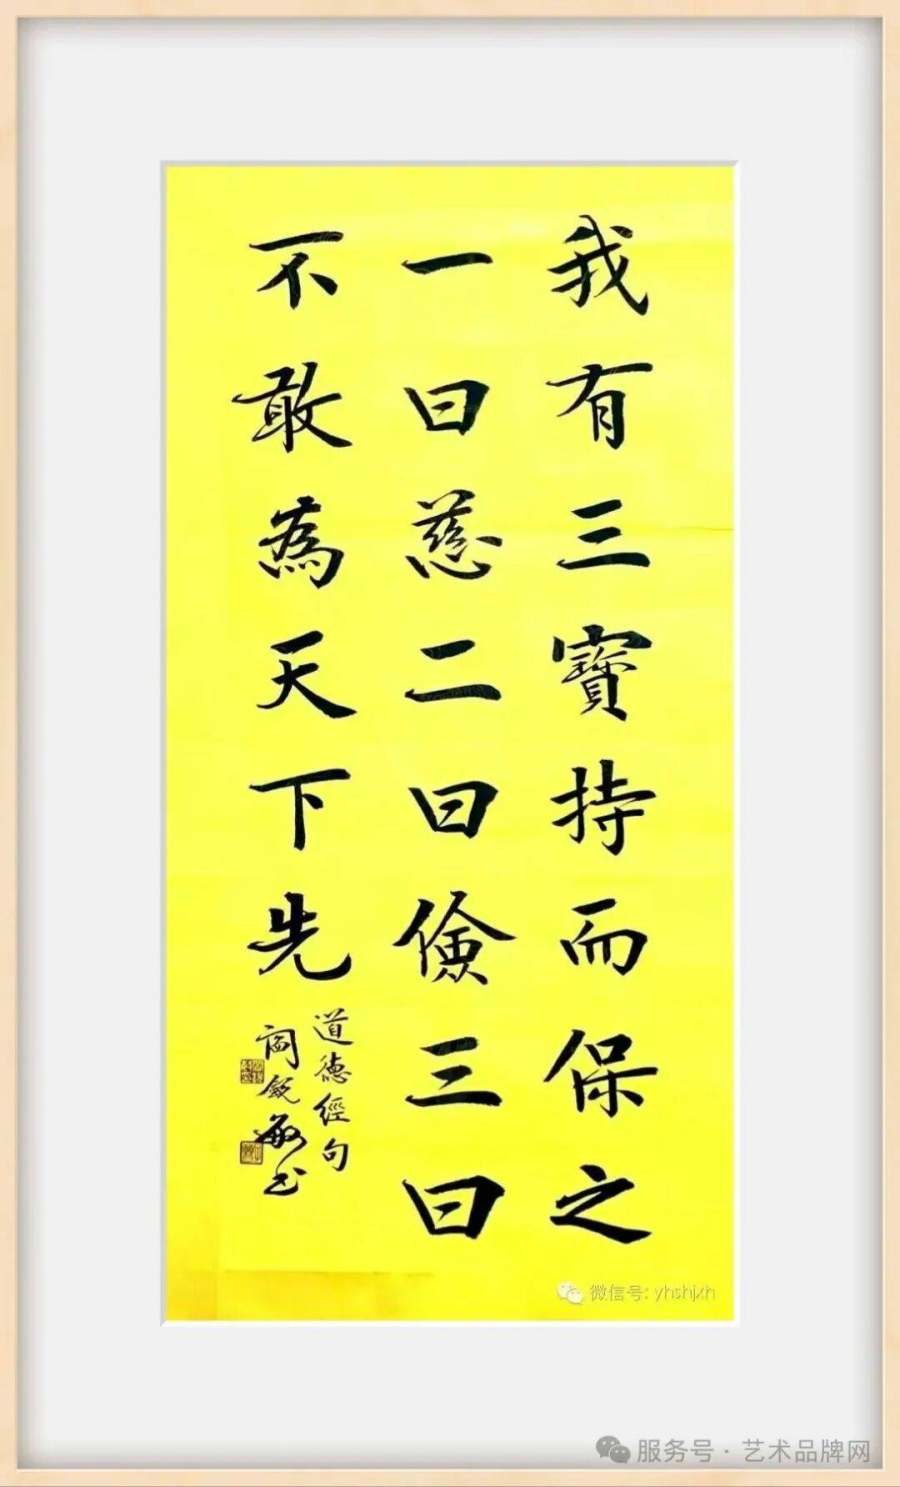 我有三寶持而保之
一曰慈二曰儉三曰
不敢為天下先
道德經句
閻銳敏书
微信号: yhshjxh
服务号·艺术品牌网